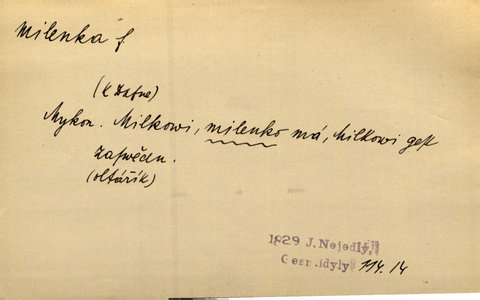 milenka f.
(k Dafne)
Mykon. Milkowi, milenko má, Milkowi gest
zaswěcen.
(oltářík)
1829 J. Nejedlý,
Gesn. idyly 114.14